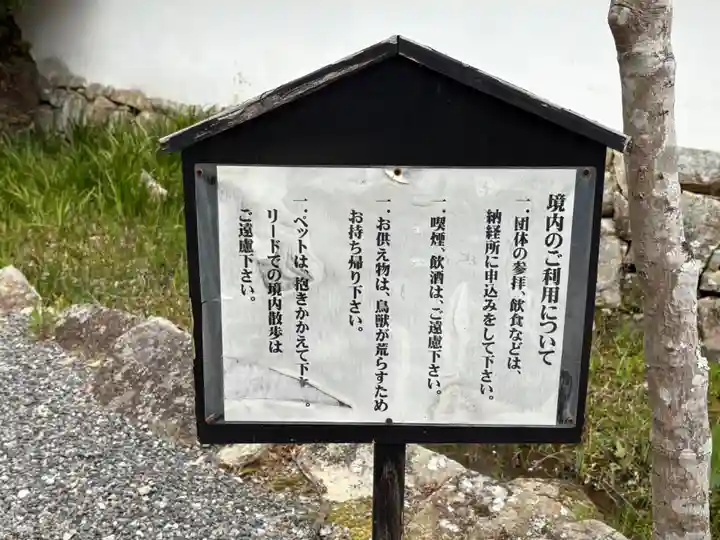 境内のご利用について
一.団体の参拝、飲食などは、
納経所に申込みをして下さい。
一.喫煙、飲酒は、ご遠慮下さい。
一.お供え物は、鳥獣が荒らすため
お持ち帰り下さい。
一.ペットは、抱きかかえて下。
リードでの境内散歩は
ご遠慮下さい。